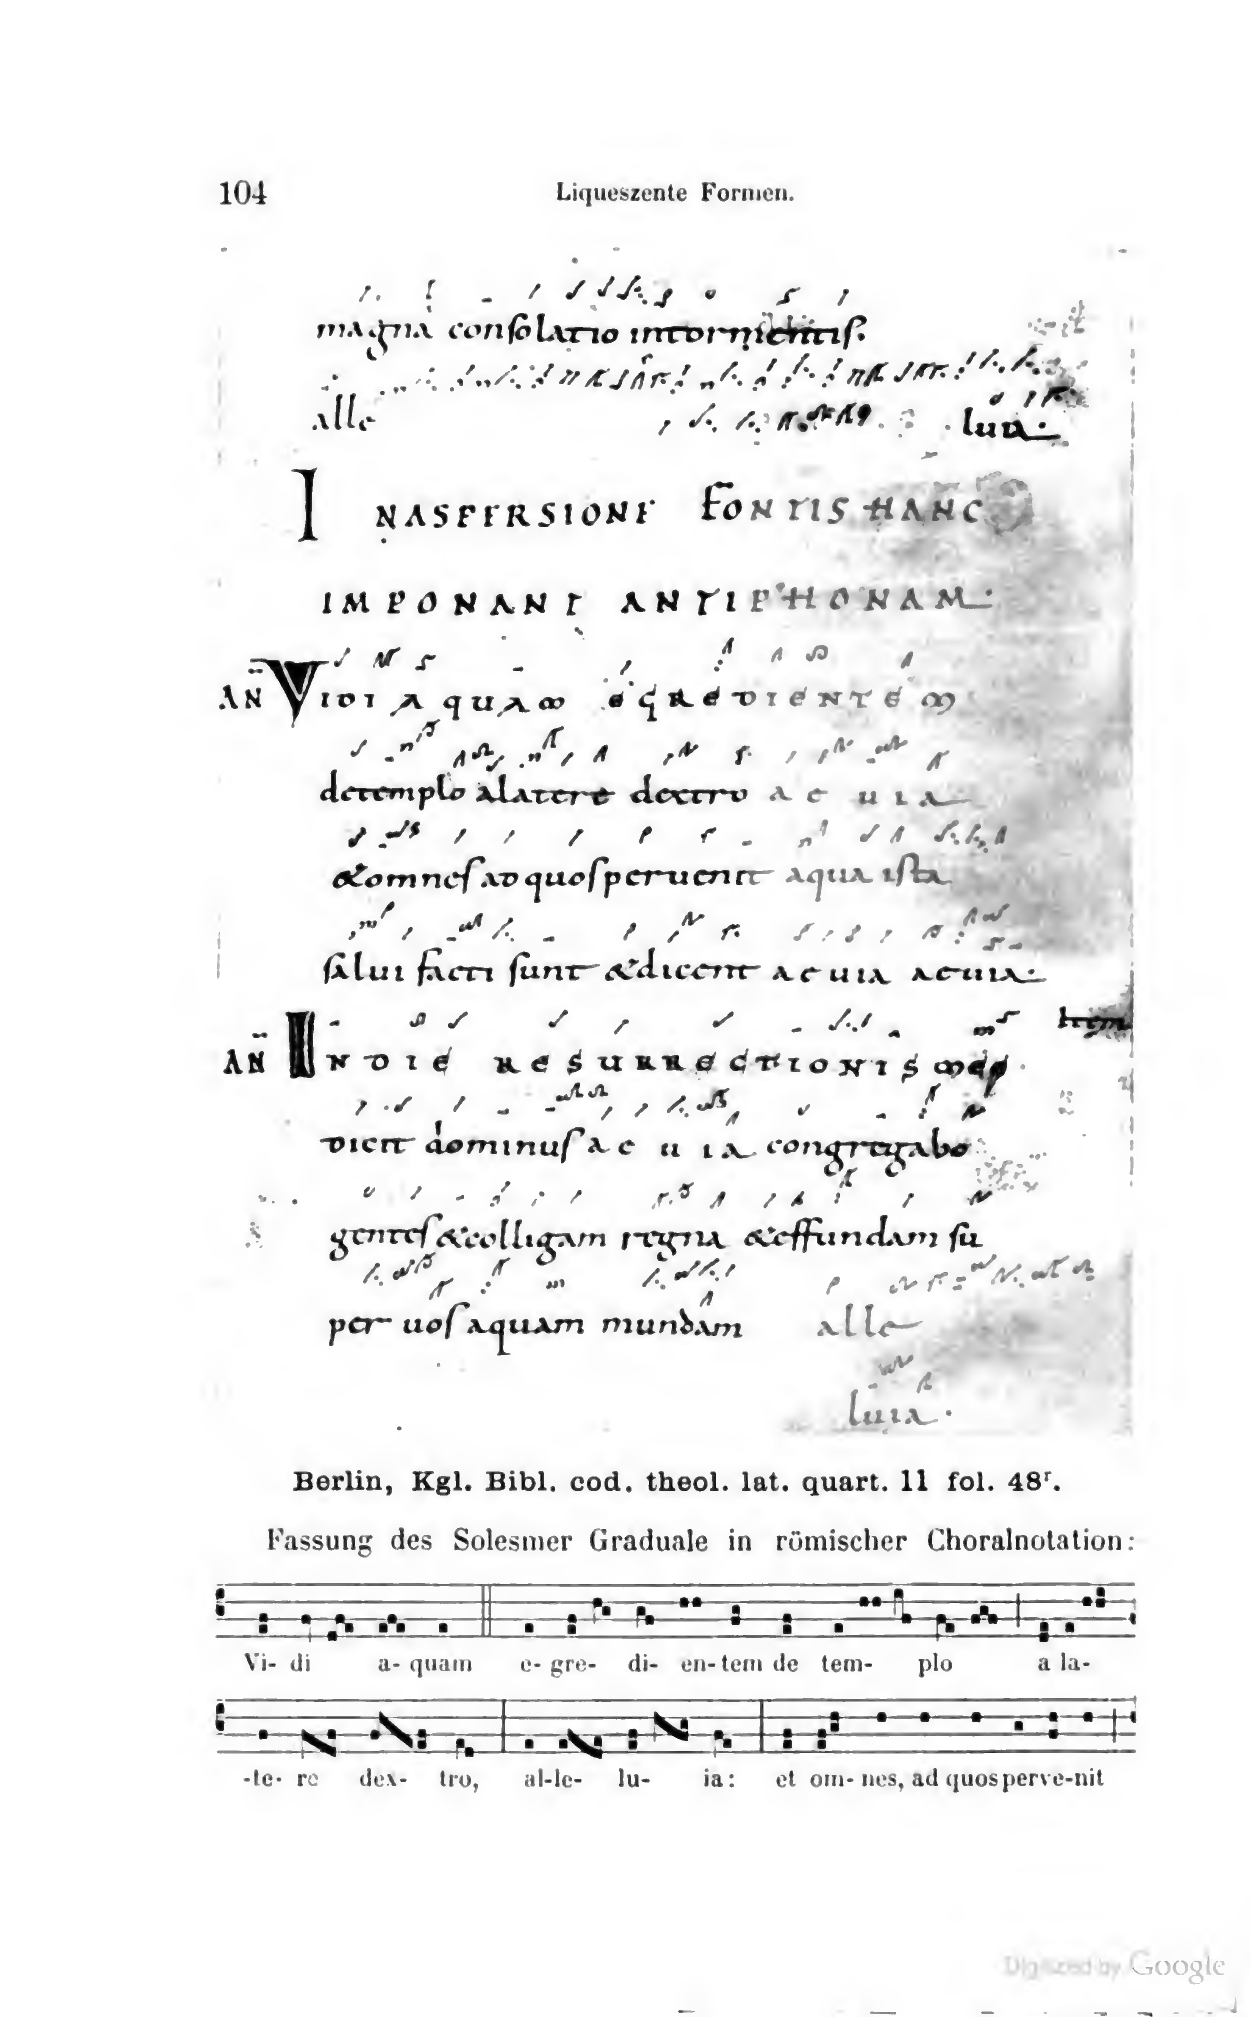 104 Liqueszente Formen.
magna consolatio intormentis.
alle luia.
INASPERSIONE FONTIS HANC
IMPONANT ANTIPHONAM.
AN VIDI AQUAM EGREDIENTEM
detemplo alatere dextro aeuia
&omnes ad quos peruenit aqua ista
salui facti sunt &dicent aeuia aeuia.
Item
AN INDIE RESURRECTIONIS MEE
dicit dominus aeuia congregabo
gentes &colligam regna &effundam su
per uos aquam mundam alle
luia.
Berlin, Kgl. Bibl. cod. theol. lat. quart. 11 fol. 48r.
Fassung des Solesmer Graduale in römischer Choralnotation:
Vi- di a- quam e- gre- di- en- tem de tem- plo a la-
-te- re dex- tro, al-le- lu- ia: et om- nes, ad quos perve-nit
Digitized by Google